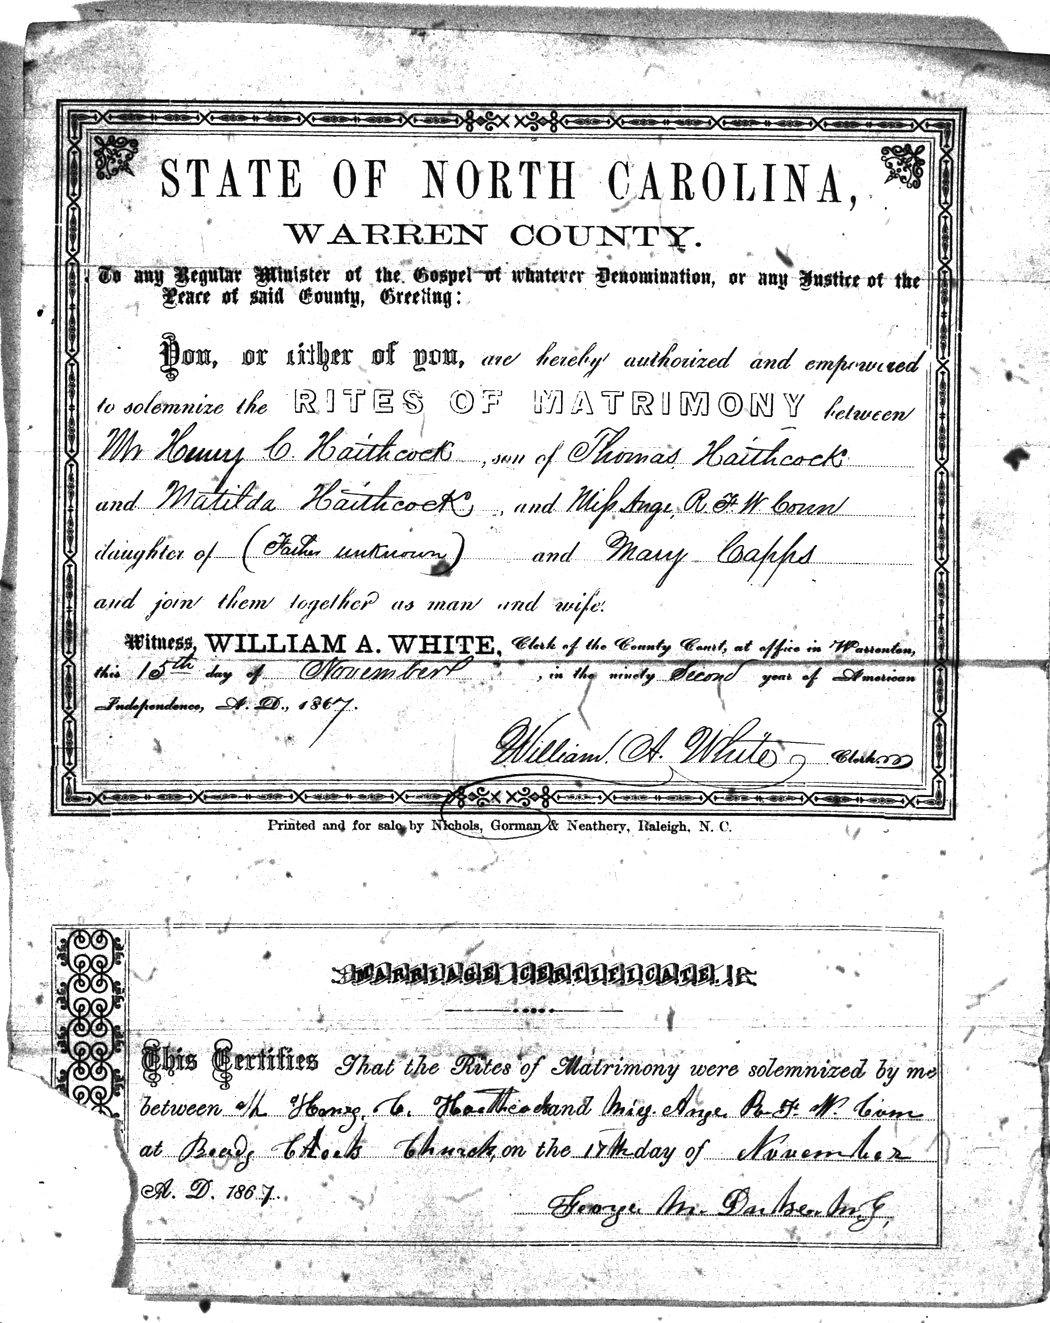 STATE OF NORTH CAROLINA,
WARREN COUNTY.
To any Regular Minister of the Gospel of whatever Denomination, or any Justice of the
Peace of said County, Greeting:
You, or either of you, are hereby authorized and empowered
to solemnize the RITES OF MATRIMONY between
Mr Henry C Haithcock, son of Thomas Haithcock
and Matilda Haithcock, and Miss Ange, R F W Conn
daughter of (Father unknown) and Mary Capps
and join them together as man and wife.
Witness, WILLIAM A. WHITE, Clerk of the County Court, at office in Warrenton,
this 15th day of November, in the ninety Second year of American
Independence, A. D., 1867.
William A. White Clerk
Printed and for sale by Nichols, Gorman & Neathery, Raleigh, N. C.
MARRIAGE CERTIFICATE.
This Certifies That the Rites of Matrimony were solemnized by me
between Henry C. Haithcock and Miss. Ange R. F. W. Conn
at Church, on the 17th day of November
A. D. 1867.
George M.